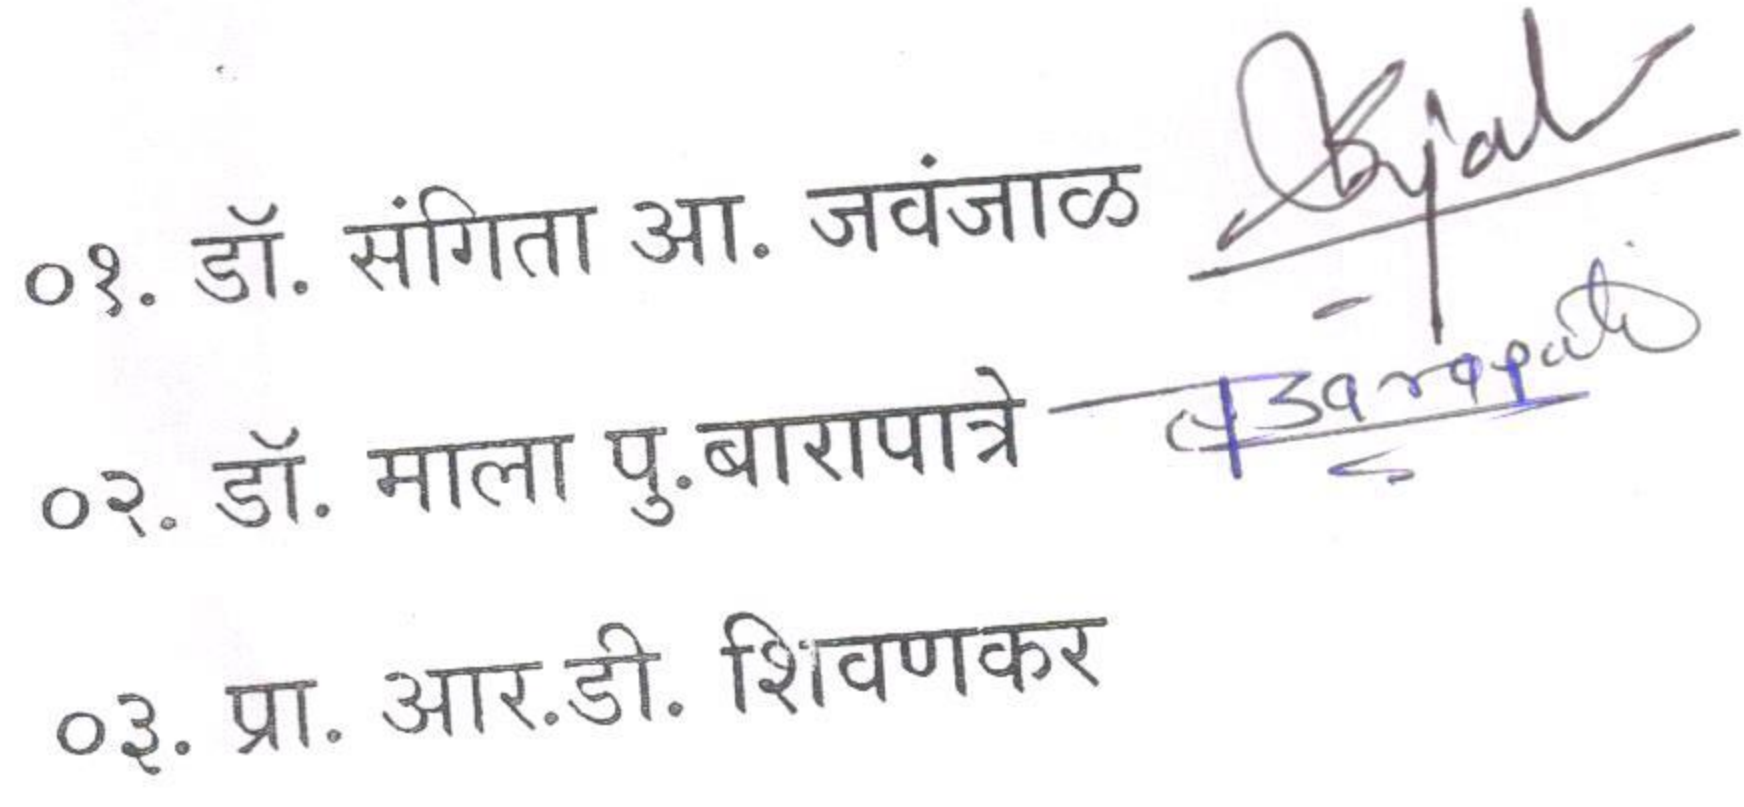 ०१. डॉ. संगिता आ. जवंजाळ
०२. डॉ. माला पु.बारापात्रे
०३. प्रा. आर.डी. शिवणकर